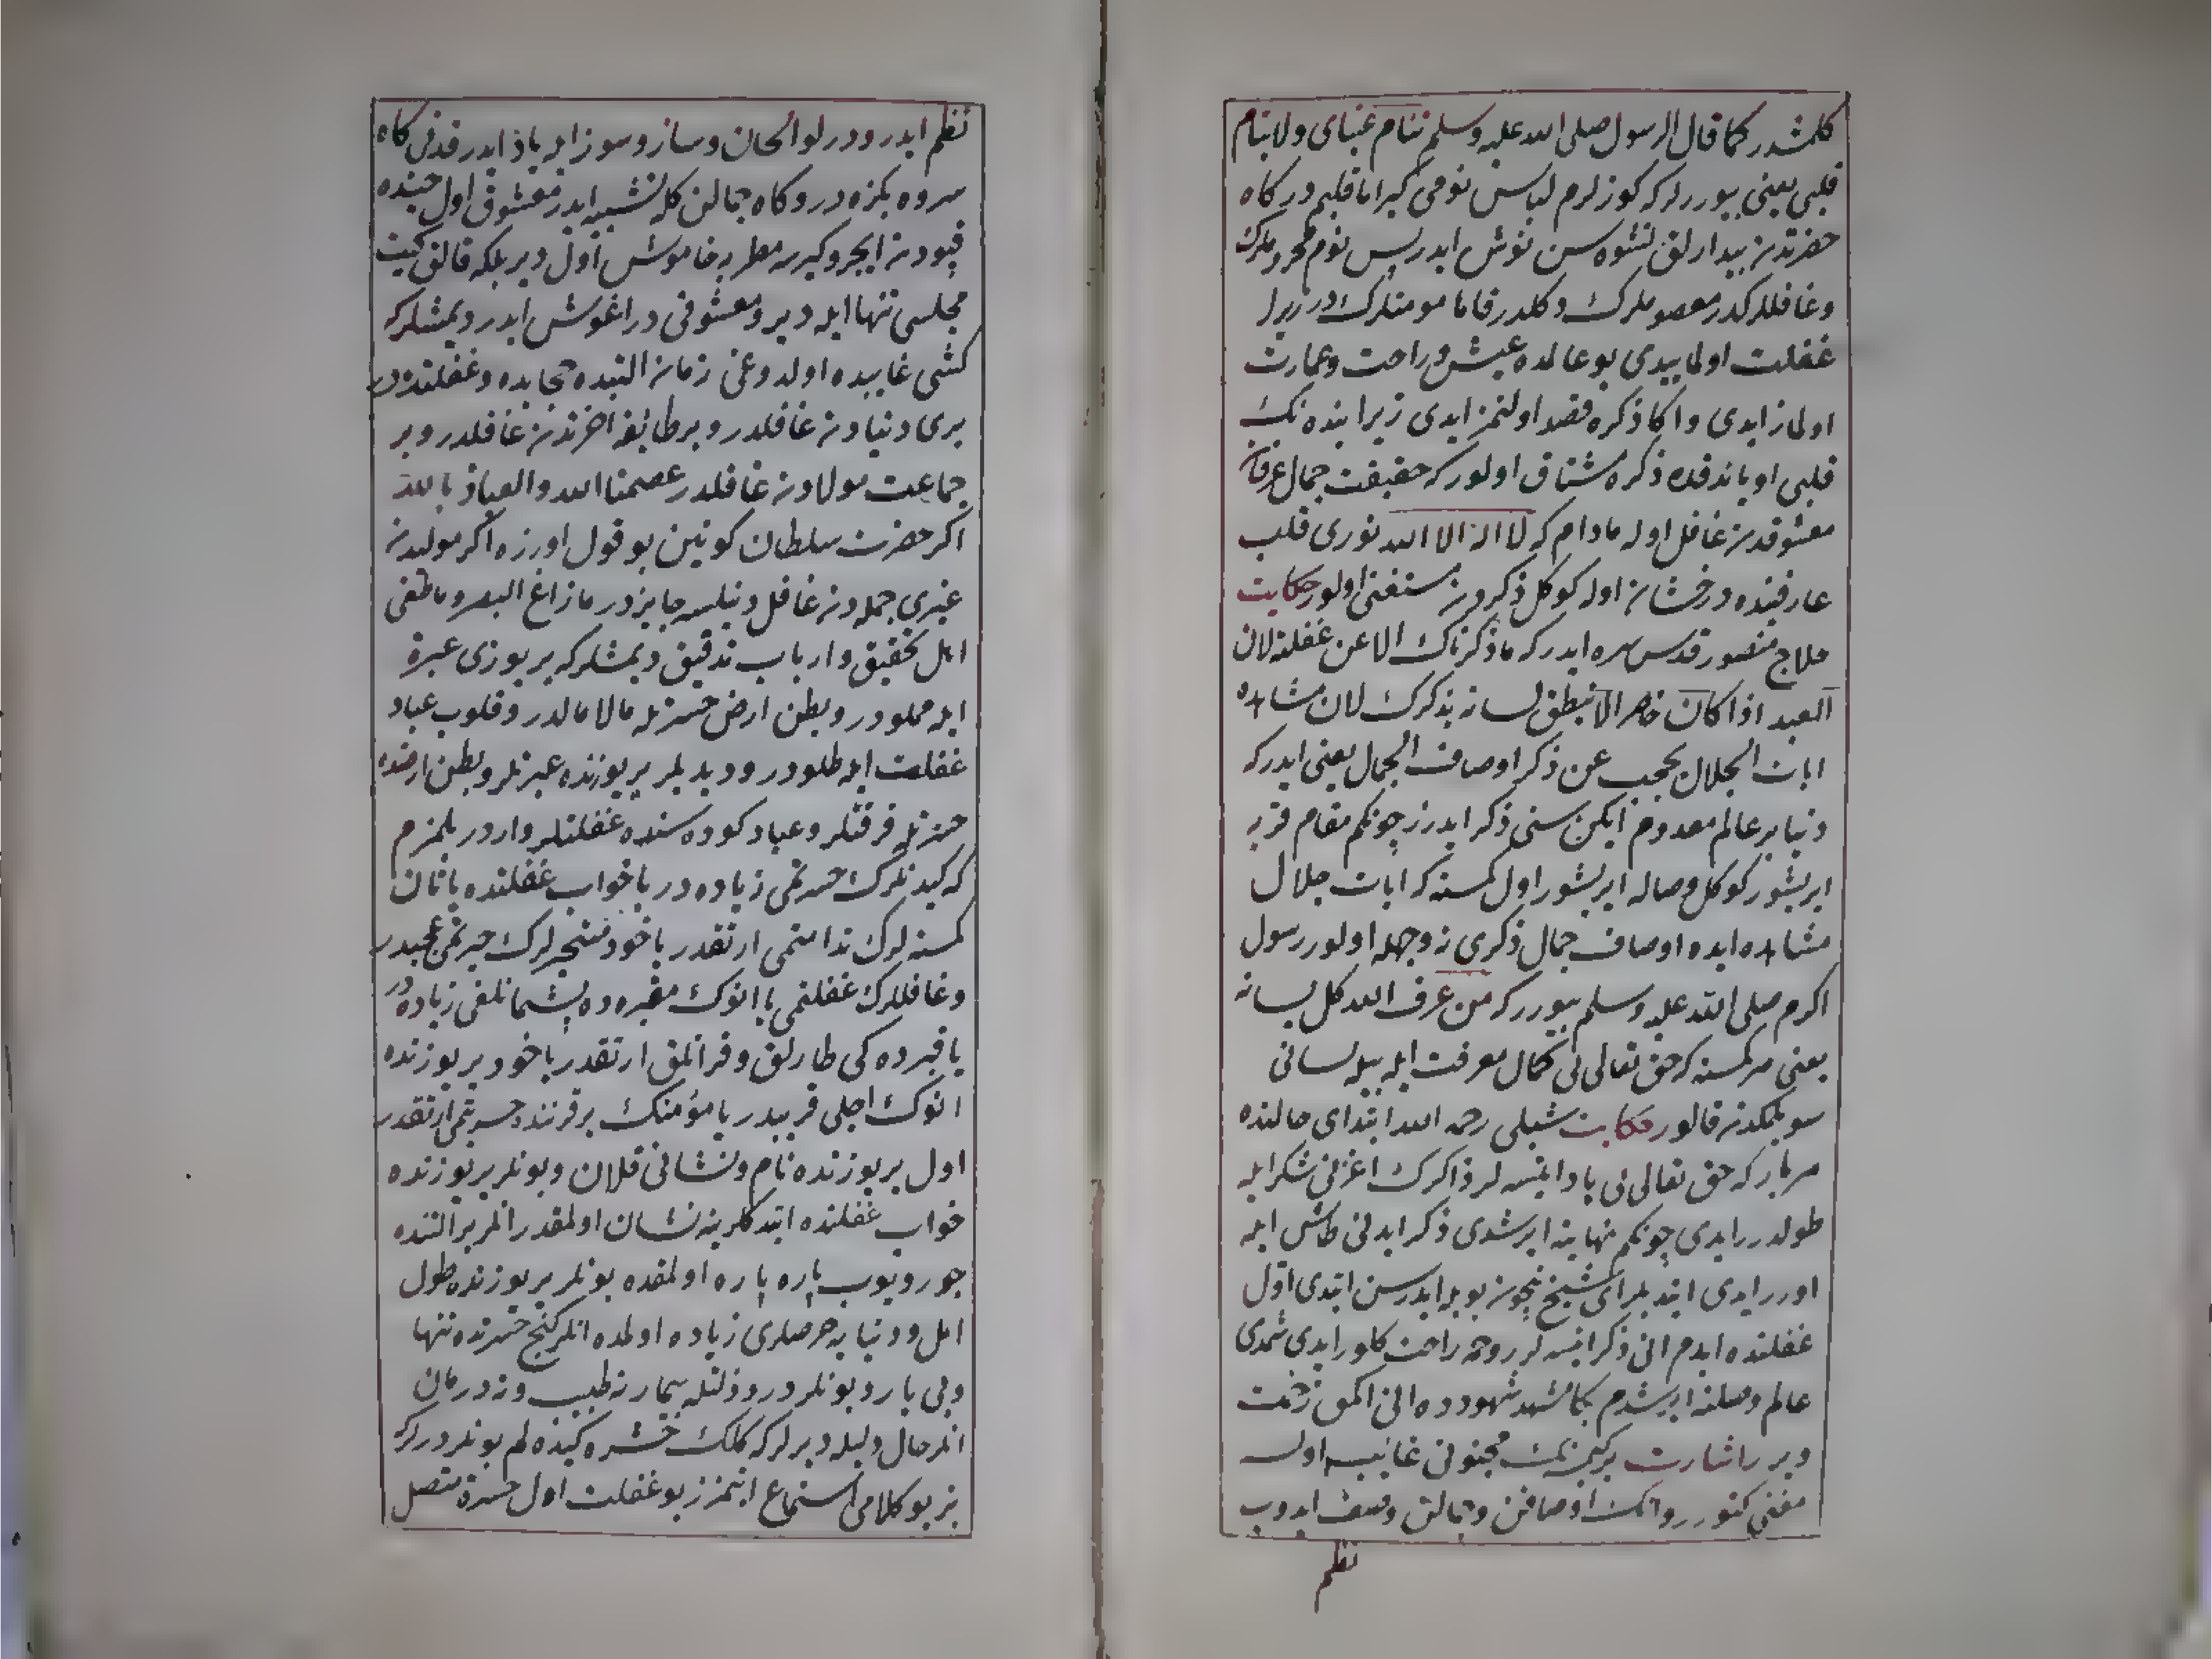 كلمشدر كما قال الرسول صلى الله عليه وسلم تنام عيناى ولا ينام
قلبى يعنى بيوررلر كه كوزلرم لباس نومى كير اما قلبم دركاه
حضرتدن بيدارلق نشوه سن نوش ايدر پس نوم
وغافللركدر معصوملرك دكلدر فاما مومنلرك
غفلت اولمايدى بو عالمده عيش وراحت وعمارت
اولمازايدى واكا ذكره قصد اولنمز ايدى زيرا بنده نك
قلبى اوياندقده ذكره مشتاق اولور كه حقيقت جمال عرفان
معشوقدن غافل اوله مادام كه لا اله الا الله نورى قلب
عارفنده درخشان اوله كوكل ذكردن مستغنى اولور حكايت
حلاج منصور قدس سره ايدر كه ما ذكرناك الا عن غفلة لان
العبد اذا كان حاضر الا ينطق لسانه بذكرك لان مشاهده
ايات الجلال يحجب عن ذكر اوصاف الجمال يعنى ايدر كه
دنيا بر عالم معدوم ايكن سنى ذكر ايدرز چونكم مقام قربه
ايريشور كوكل وصاله ايريشور اول كمسنه كه ايات جلال
مشاهده ايده اوصاف جمال ذكرى نه وجهله اولور رسول
اكرم صلى الله عليه وسلم بيورر كه من عرف الله كل لسانه
يعنى هر كمسنه كه حق تعالى يى كمال معرفت ايله بيله لسانى
سويلمكدن قالور حكايت شبلى رحمه الله ابتداى حالنده
هر بار كه حق تعالى يى ياد ايتسه لر ذاكرك اغزنى شكر ايله
طولدررايدى چونكم نهايته ايرشدى ذكر ايدنى طاش ايله
اوررايدى ايتديلر اى شيخ نيچون بويله ايدرسن ايتدى اول
غفلتده ايدم انى ذكر ايتسه لر روحمه راحت كلورايدى شمدى
عالم وصلته ايرشدم بكا مشهد شهودده انى اكمق زحمت
ويرر اشارت بر كمسنه نك محبوبى غائب اولسه
مغنى كتورر وانك اوصافن وجمالن وصف ايدوب
نظم
نظم ايدر ودرلو الحان وساز وسوز ايله ياد ايدر قدنى كاه
سروه بكزه در وكاه جمالن كله تشبيه ايدر معشوق اول حينده
قپودن ايچرو كيرسه مطربه خاموش اول دير بلكه قالق كيت
مجلسى تنها ايله دير ومعشوقى در اغوش ايدر ديمشلر كه
كشى غايبده اولدوغى زمان البته ده حجابده وغفلتده در
برى دنيادن غافلدر وبر طائفه اخرتدن غافلدر وبر
جماعت مولادن غافلدر عصمنا الله والعياذ بالله
اكر حضرت سلطان كونين بو قول اوزره اكر مولدن
غيرى جمله دن غافل دنيلسه جايزدر ما زاغ البصر وما طغى
اهل تحقيق وارباب تدقيق ديمشلر كه ير يوزى عبرة
ايله مملودر وبطن ارض حسرتله مالامالدر وقلوب عباد
غفلت ايله طلودر وديديلر ير يوزنده عبرتلر وبطن ارضده
حسرتلر فرقتلر وعباد كوده سنده غفلتلر واردر بلمزم
كه كيدنلرك حسرتمى زياده در يا خواب غفلتده ياتان
كمسنه لرك ندامتمى ارتقدر ياخود متحيرلرك حيرتمى عجبدر
وغافللرك غفلتمى يا انوك مقبره ده پشمانلغى زياده در
يا قبرده كى طارلق وقرانلق ارتقدر ياخود ير يوزنده
انوك اجلى قريبدر يا مؤمنك ير قرنده حسرتمى ارتقدر
اول ير يوزنده نام ونشانى قلان وبونلر ير يوزنده
خواب غفلتده ايتدكلرينه نشان اولمقدر انلر ير التنده
چورويوب پاره پاره اولمقده بونلر ير يوزنده طول
امل ودنيايه حرصلرى زياده اولمده انلر كنج حسرتده تنها
وبى يار وبونلر درد وذلتله بيمار نه طبيب ونه درمان
انلر حال دليله ديرلر كه كلك حشره كيده لم بونلر ديرلر كه
بز بو كلامى استماع ايتمزز بو غفلت اول حسرة متصل